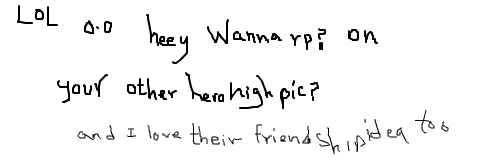 LOL o.o heey Wanna rp? on
your other hero high pic?
and I love their friendship idea too